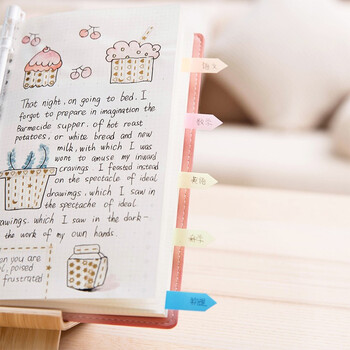 That night, on going to bed, I
forgot to prepare in imagination the
Barmecide supper, of hot roast
potatoes, or white bread and new
milk, with which I was
wont to amuse my inward
cravings I feasted instead
on the spectacle of ideal
drawings, which I saw in
the spectacle of ideal
awings, which I saw in the dark-
the work of my own hands.
en you are
l, poised
frustrated
语文
数学
英语
科学